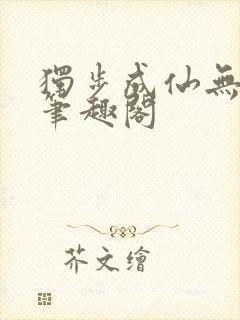 獨步成仙無
筆趣閣
芥文繪